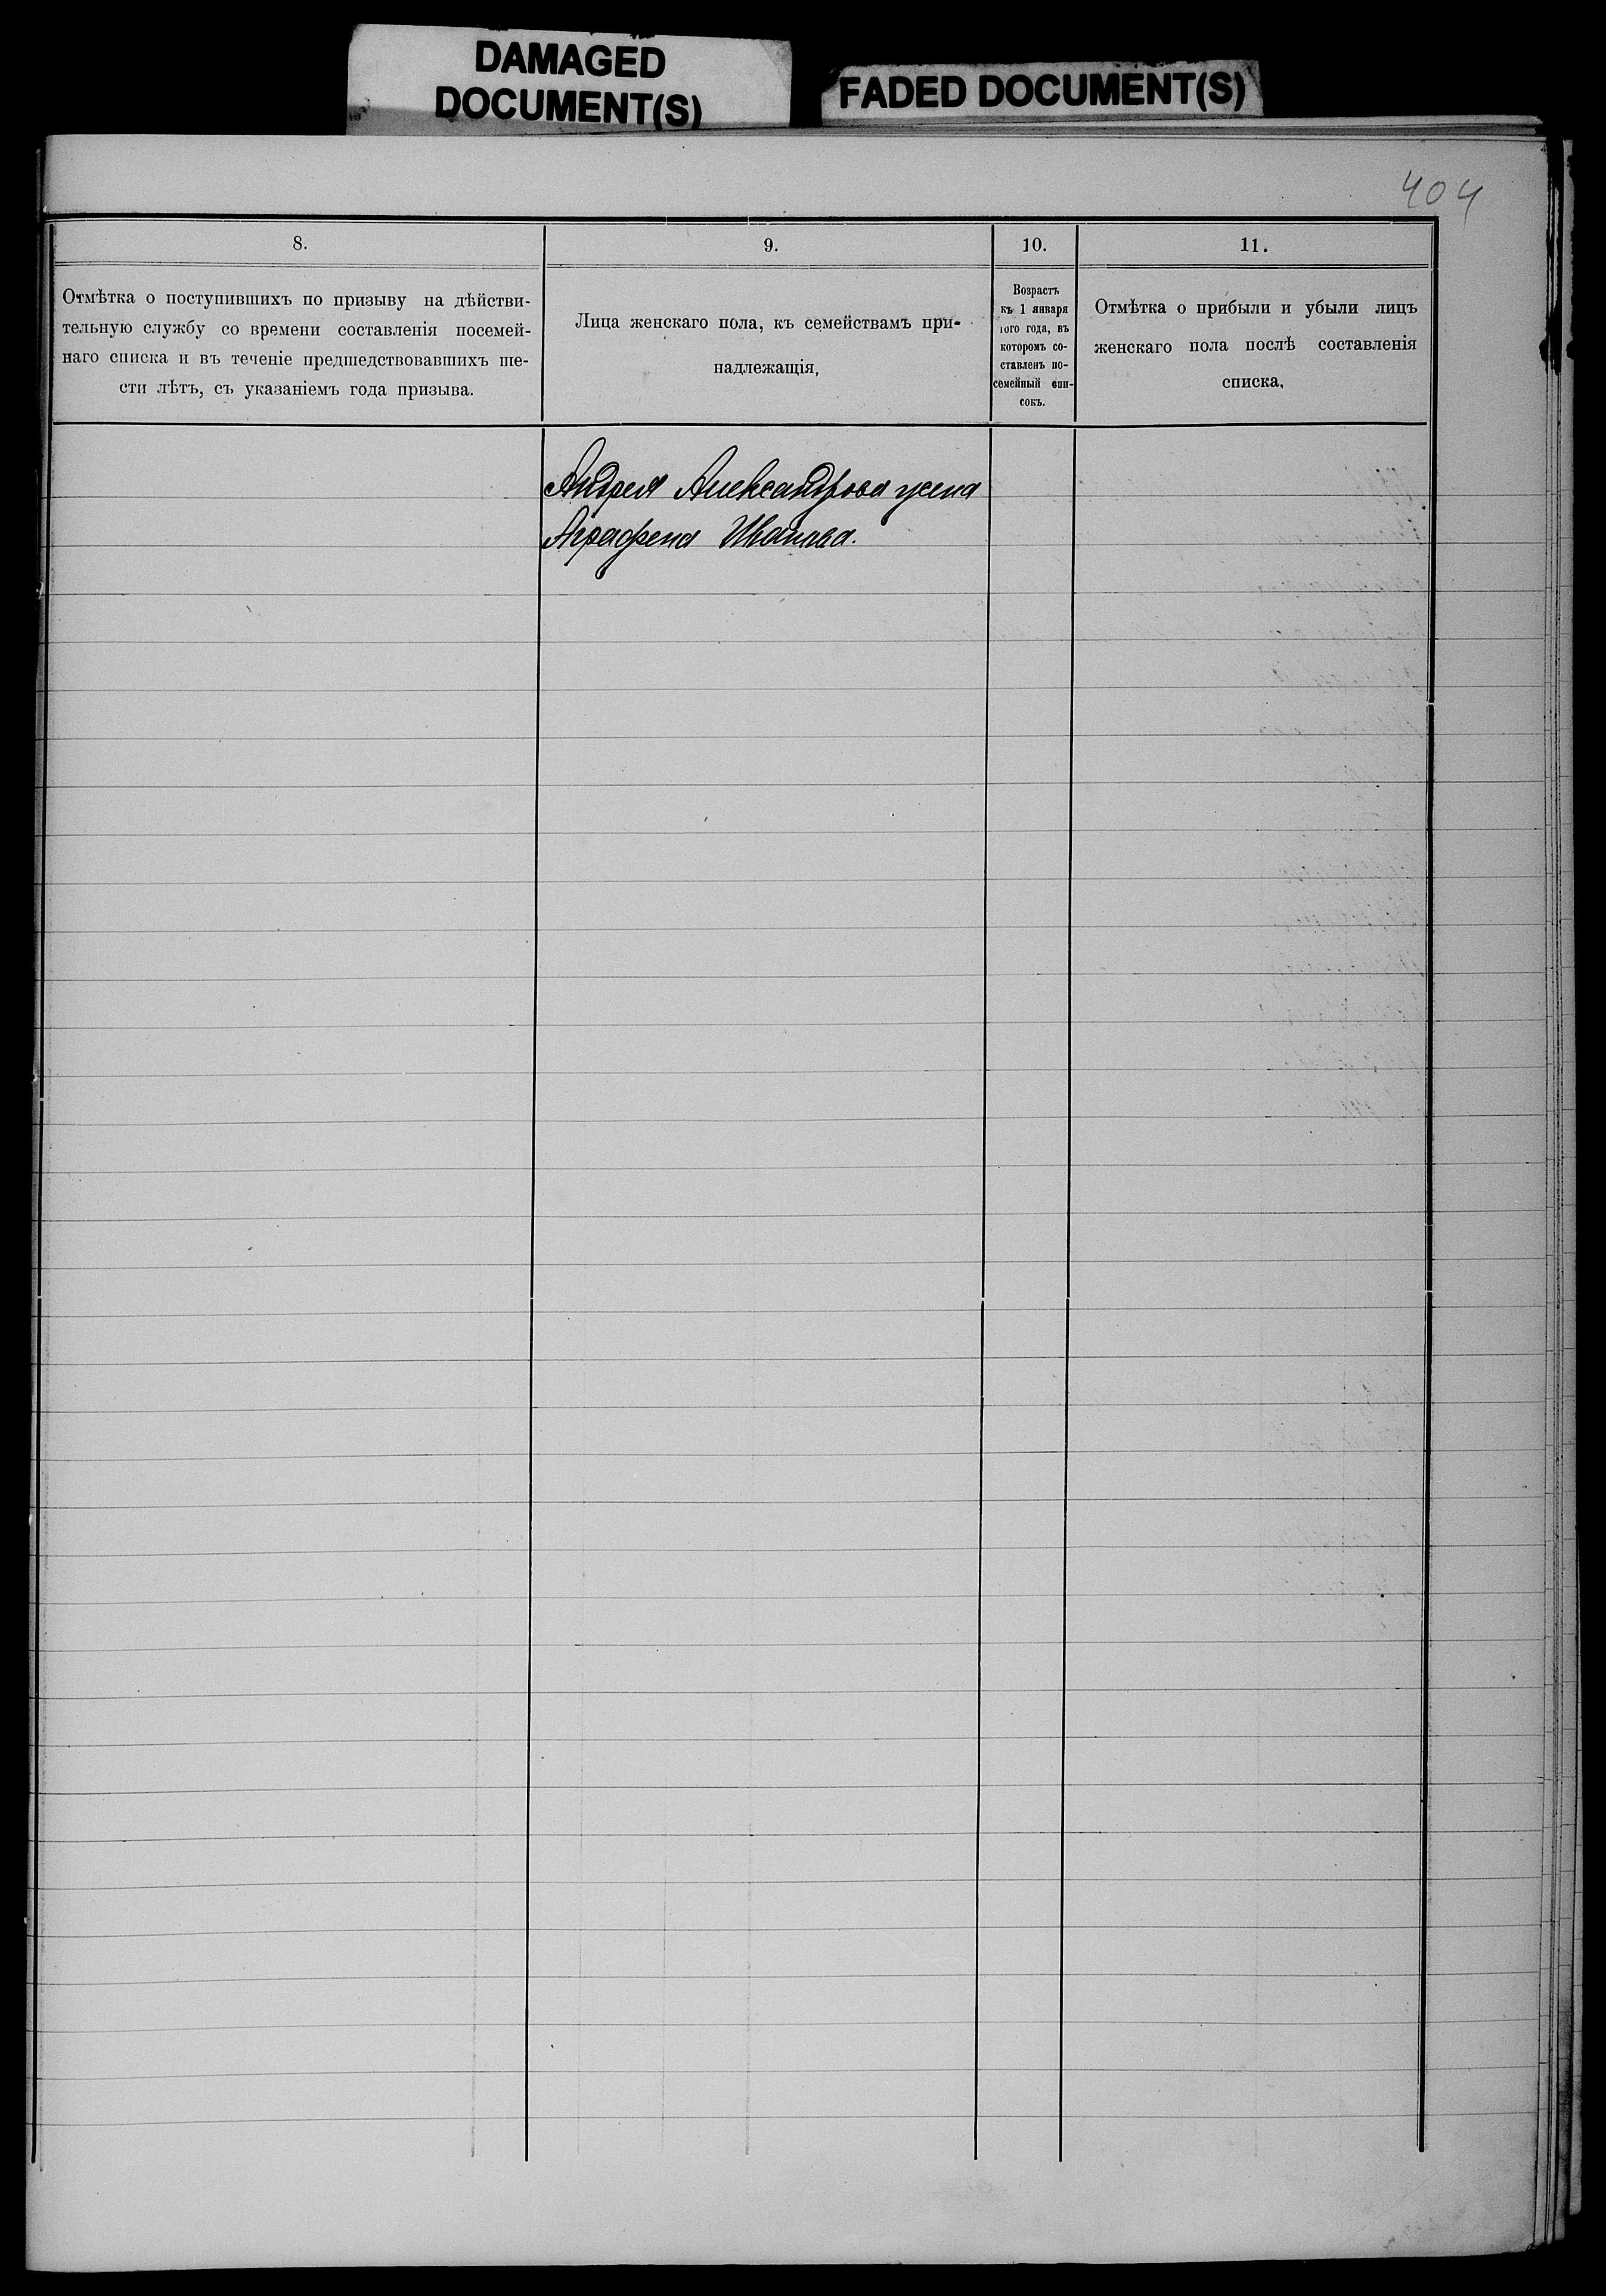 DAMAGED
DOCUMENT(S)
FADED DOCUMENT(S)
404
8.
9.
10.
11.
Отмѣтка о поступившихъ по призыву на дѣйстви-
тельную службу со времени составленія посемей-
наго списка и въ теченіе предшедствовавшихъ ше-
сти лѣтъ, съ указаніемъ года призыва.
Лица женскаго пола, къ семействамъ при-
надлежащія,
Возрастъ
къ 1 января
того года, въ
которомъ со-
ставленъ по-
семейный спи-
сокъ.
Отмѣтка о прибыли и убыли лицъ
женскаго пола послѣ составленія
списка,
Андрея Александрова жена
Аграфена Иванова.